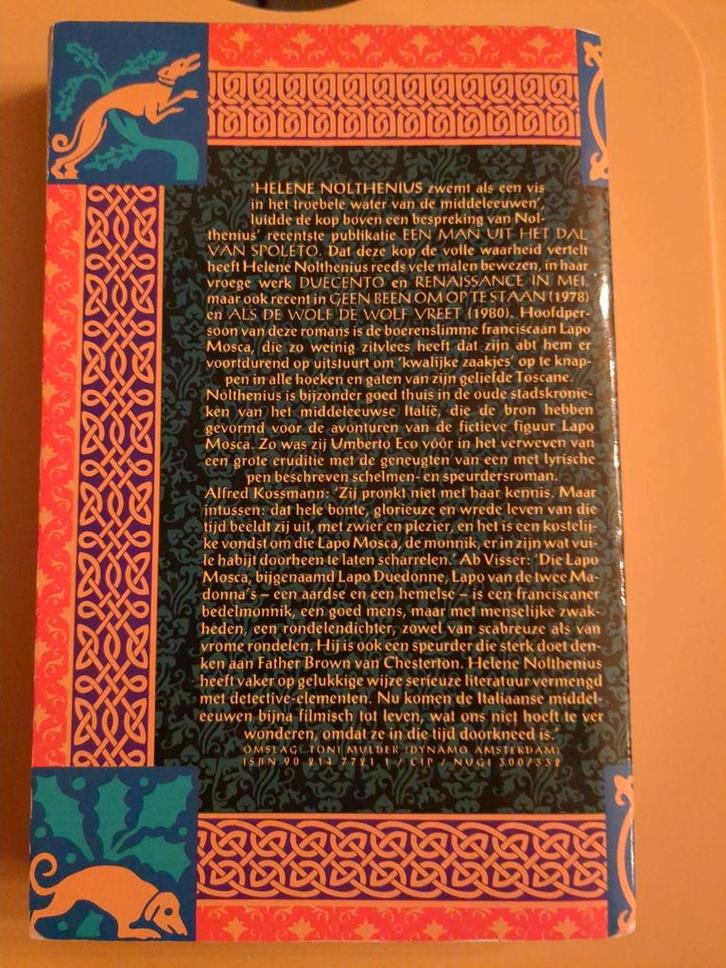 'HELENE NOLTHENIUS zwemt als een vis
in het troebele water van de middeleeuwen',
luidde de kop boven een bespreking van Nol-
thenius' recentste publikatie EEN MAN UIT HET DAL
VAN SPOLETO. Dat deze kop de volle waarheid vertelt
heeft Helene Nolthenius reeds vele malen bewezen, in haar
vroege werk DUECENTO en RENAISSANCE IN MEI,
maar ook recent in GEEN BEEN OM OP TE STAAN (1978)
en ALS DE WOLF DE WOLF VREET (1980). Hoofdper-
soon van deze romans is de boerenslimme franciscaan Lapo
Mosca, die zo weinig zitvlees heeft dat zijn abt hem er
voortdurend op uitstuurt om 'kwalijke zaakjes' op te knap-
pen in alle hoeken en gaten van zijn geliefde Toscane.
Nolthenius is bijzonder goed thuis in de oude stadskronie-
ken van het middeleeuwse Italië, die de bron hebben
gevormd voor de avonturen van de fictieve figuur Lapo
Mosca. Zo was zij Umberto Eco vóór in het verweven van
een grote eruditie met de geneugten van een met lyrische
pen beschreven schelmen- en speurdersroman.
Alfred Kossmann: 'Zij pronkt niet met haar kennis. Maar
intussen: dat hele bonte, glorieuze en wrede leven van die
tijd beeldt zij uit, met zwier en plezier, en het is een kostelij-
ke vondst om die Lapo Mosca, de monnik, er in zijn wat vui-
le habijt doorheen te laten scharrelen.' Ab Visser: 'Die Lapo
Mosca, bijgenaamd Lapo Duedonne, Lapo van de twee Ma-
donna's – een aardse en een hemelse – is een franciscaner
bedelmonnik, een goed mens, maar met menselijke zwak-
heden, een rondelendichter, zowel van scabreuze als van
vrome rondelen. Hij is ook een speurder die sterk doet den-
ken aan Father Brown van Chesterton. Helene Nolthenius
heeft vaker op gelukkige wijze serieuze literatuur vermengd
met detective-elementen. Nu komen de Italiaanse middel-
eeuwen bijna filmisch tot leven, wat ons niet hoeft te ver
wonderen, omdat ze in die tijd doorkneed is.'
OMSLAG: TONI MULDER (DYNAMO AMSTERDAM)
ISBN 90 214 7721 1 / CIP / NUGI 300/332